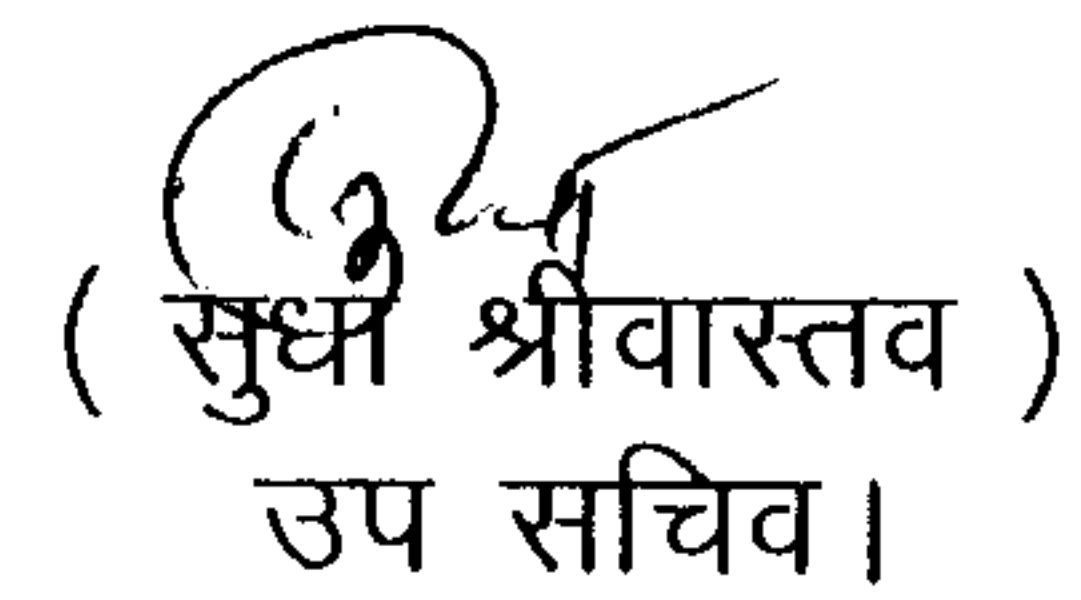 ( सुधा श्रीवास्तव )
उप सचिव।